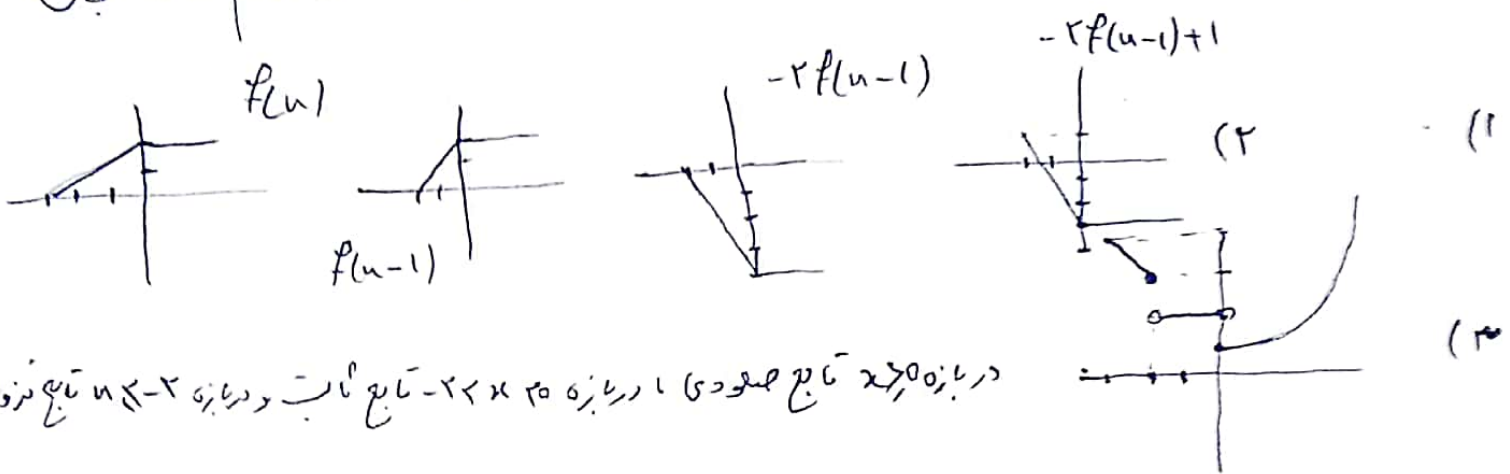 (۱
(۲
f(n)
f(n-1)
-۲f(n-1)
-۲f(n-1)+1
(۳
در بازه x⩾0 تابع صعودی ، در بازه -۲<x<0 تابع ثابت و در بازه n⩽-۲ تابع